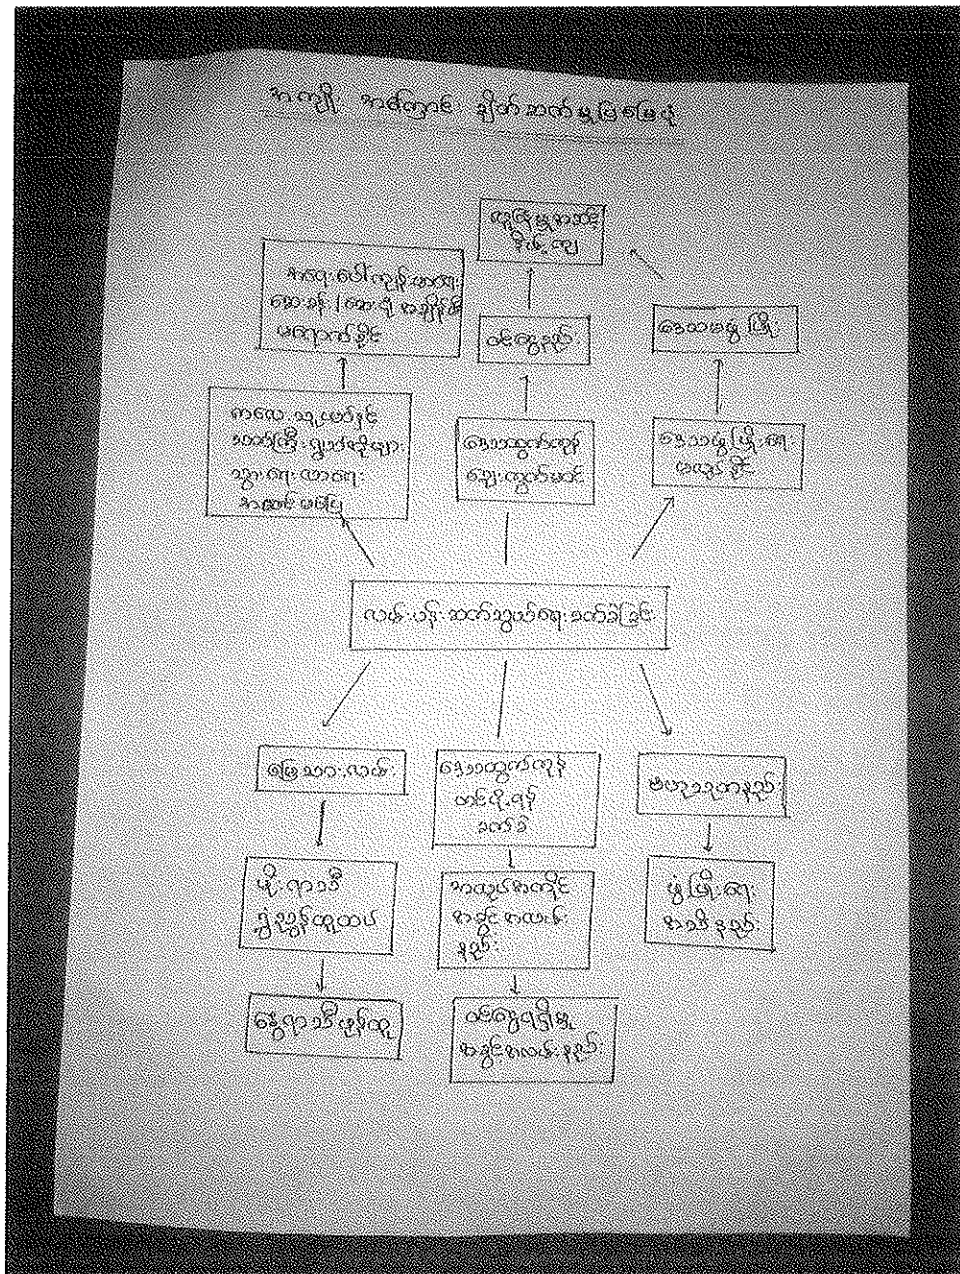 အကျိုး အကြောင်း ချိတ်ဆက်မှုပြမြေပုံ
လူမှုစီးပွား
နိမ့်ကျ
အရေးပေါ်ကျန်းမာရေး
ဆေးခန်း / ဆေးရုံ အချိန်မီ
မရောက်နိုင်
ဝင်ငွေနည်း
ဒေသမဖွံ့ဖြိုး
ကလေးသူငယ်နှင့်
သက်ကြီးရွယ်အိုများ
သွားရေးလာရေး
အဆင်မပြေ
ဒေသထွက်ကုန်
ဈေးကွက်မဝင်
ဒေသဖွံ့ဖြိုးရေး
မလုပ်နိုင်
လမ်းပန်းဆက်သွယ်ရေးခက်ခဲခြင်း
မြေသားလမ်း
ဒေသထွက်ကုန်
တင်ပို့ရန်
ခက်ခဲ
ဗဟုသုတနည်း
မိုးရာသီ
ရွှံ့ညွှန်ထူထပ်
အလုပ်အကိုင်
အခွင့်အလမ်း
နည်း
ဖွံ့ဖြိုးရေး
အသိနည်း
နွေရာသီဖုန်ထူ
ဝင်ငွေရရှိမှု
အခွင့်အလမ်းနည်း